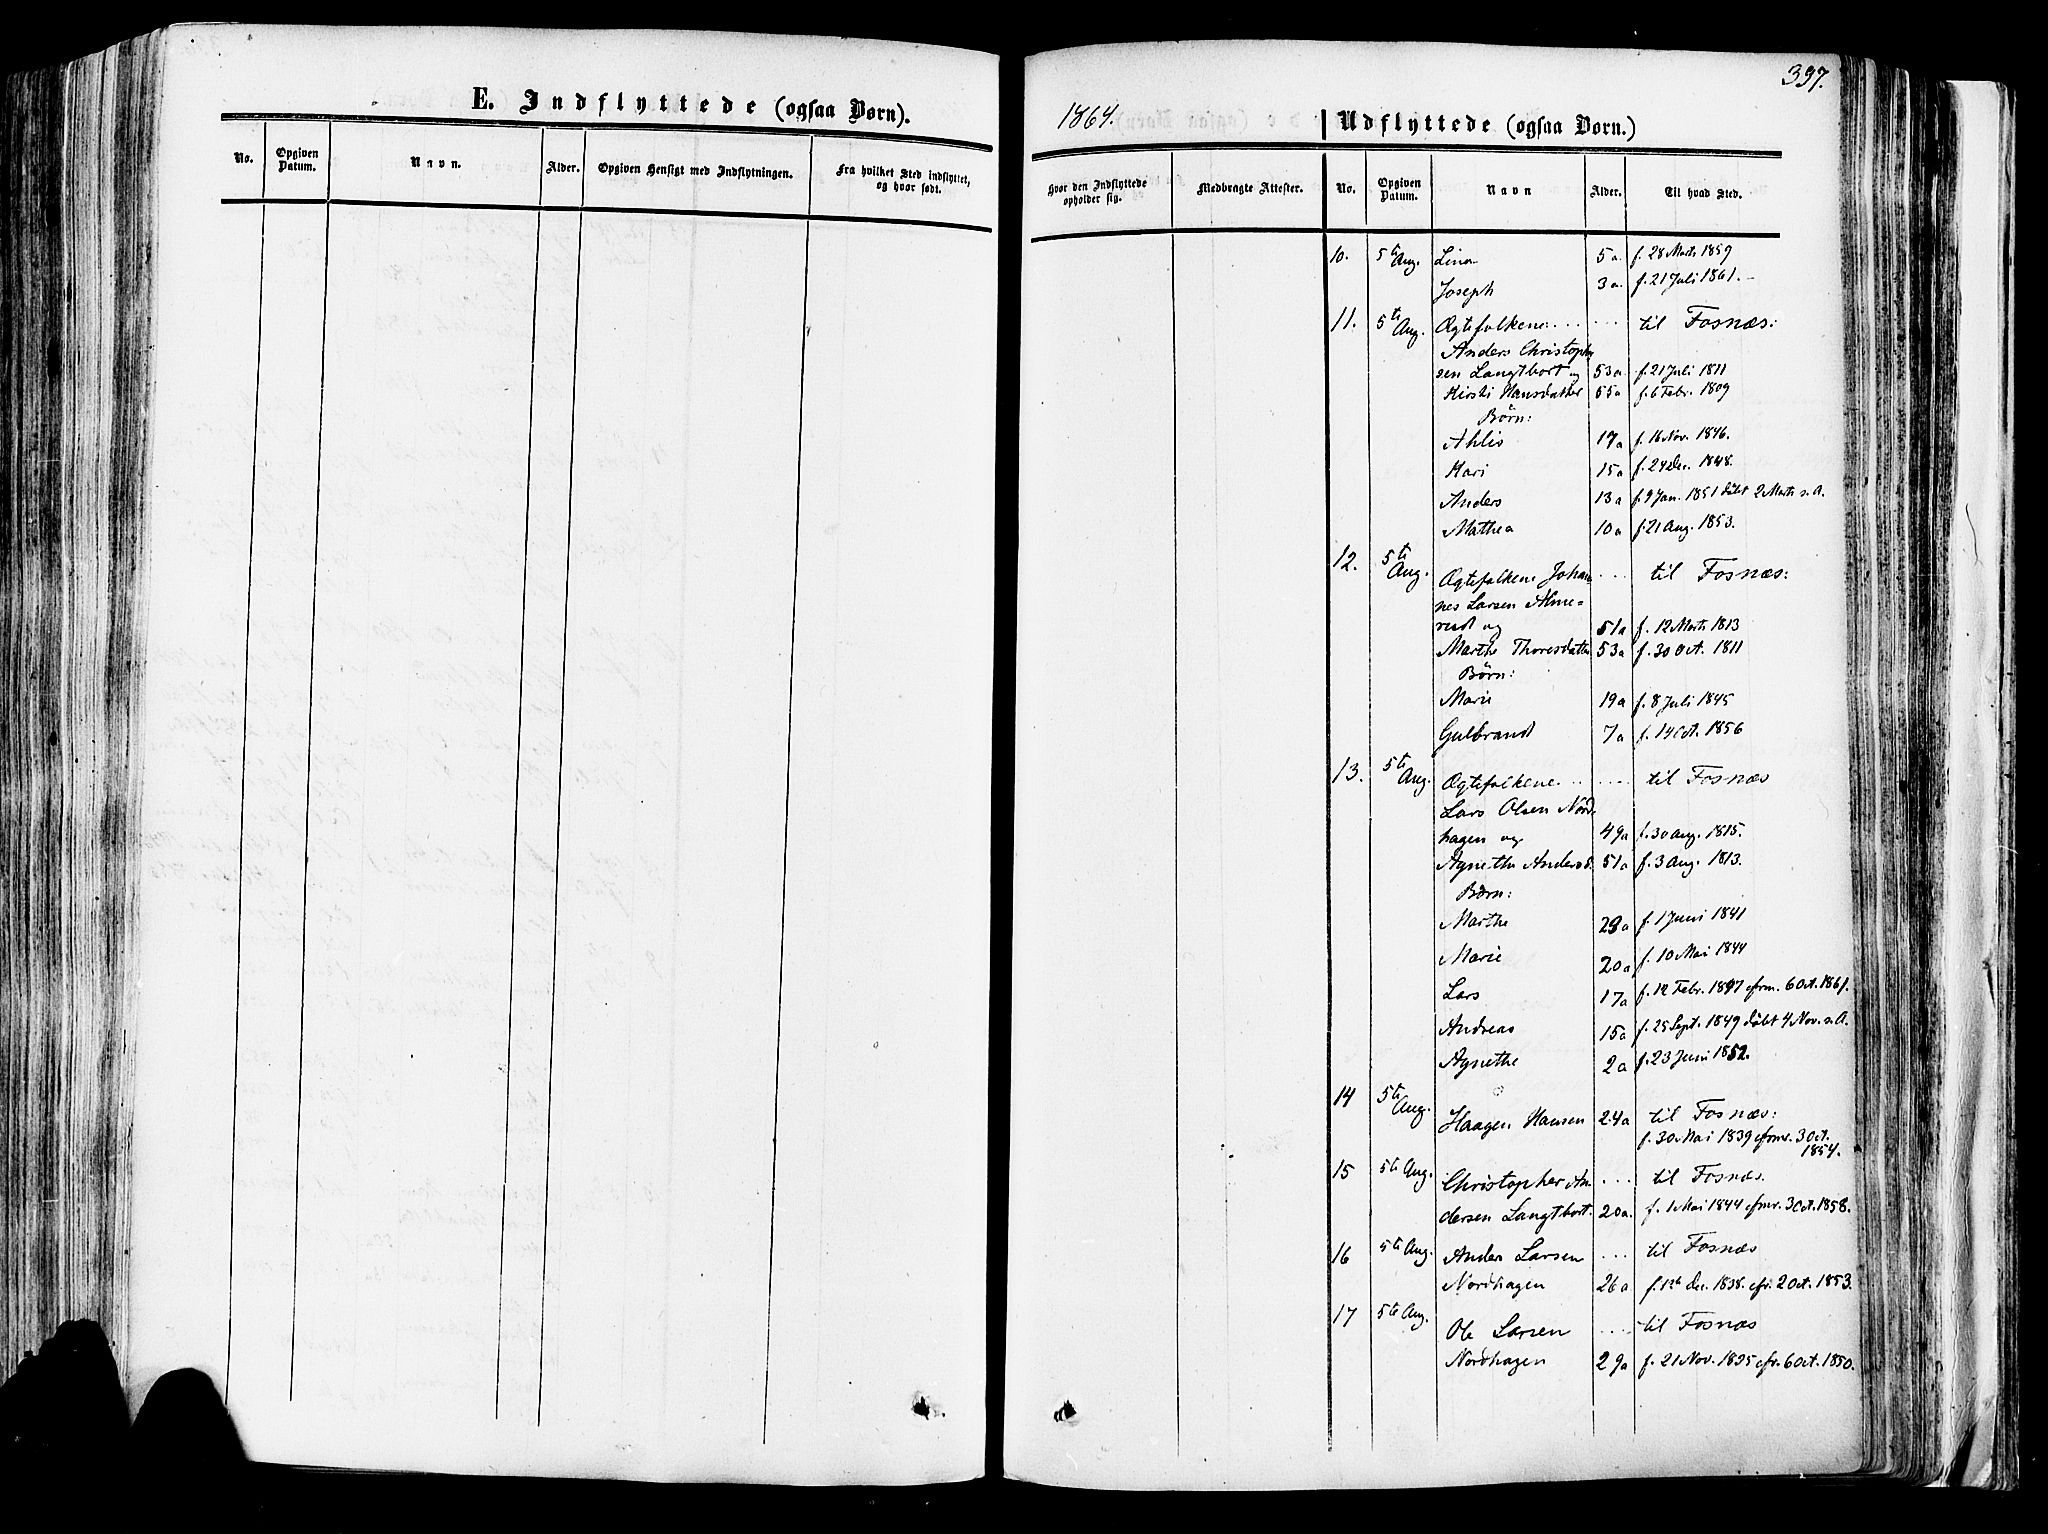 E. Indflyttede (ogsaa Børn).
No.
Opgiven Datum.
Navn.
Alder.
Opgiven Hensigt med Indflytningen.
Fra hvilket Sted indflyttet, og hvor født.
397.
1864.
Udflyttede (ogsaa Børn.)
Hvor den Indflyttede opholder sig.
Medbragte Attester.
No.
Opgiven Datum.
Navn
Alder.
Til hvad Sted.
10. 5te Aug. Lina 5 a. f. 28 Marts 1859
Joseph 3 a. f. 21 Juli 1861. –
11. 5te Aug. Ægtefolkene .... til Fosnæs:
Anders Christopher
sen Langtbort og 53 a. f. 21 Juli 1811
Kirsti Hansdatter 55 a f. 6 Febr. 1809
Børn:
Ahlis 17 a f. 16 Nov. 1846.
Kari 15 a f. 24 Dec. 1848.
Anders 13 a f. 9 Jan. 1851 døbt 2 Marts s. A.
Mathea 10 a f. 21 Aug. 1853.
12. 5te Aug. Ægtefolkene Johan .... til Fosnæs:
nes Larsen Alme=
rud og 51 a f. 12 Marts 1813
Marthe Thoresdatter 53 a f. 30 Oct. 1811
Børn:
Marie 19 a f. 8 Juli 1845
Gulbrand 7 a f. 14 Oct. 1856
13. 5te Aug. Ægtefolkene .... til Fosnæs
Lars Olsen Nord=
hagen og 49 a f. 30 Aug. 1815.
Agnethe Andersd. 51 a f. 3 Aug. 1813.
Børn:
Marthe 23 a f. 1 Juni 1841
Marie 20 a f. 10 Mai 1844
Lars 17 a f. 12 Febr. 1847 cfrm. 6 Oct. 1861.
Andreas 15 a f. 25 Sept. 1849 døbt 4 Nov. s. A.
Agnethe 2 a f. 23 Juni 1852.
14 5te Aug. Haagen Hansen 24 a til Fosnæs:
f. 30 Mai 1839 cfmr. 3 Oct.
1854.
15 5te Aug. Christopher An .... til Fosnæs.
dersen Langtbort. 20 a. f. 1 Mai 1844 cfmr. 3 Oct. 1858.
16 5te Aug. Anders Larsen .... til Fosnæs
Nordhagen 26 a f. 1ste Dec. 1838. cfr. 2 Oct. 1853.
17 5te Aug. Ole Larsen .... til Fosnæs
Nordhagen 29 a f. 21 Nov. 1835 cfr. 6 Oct. 1850.